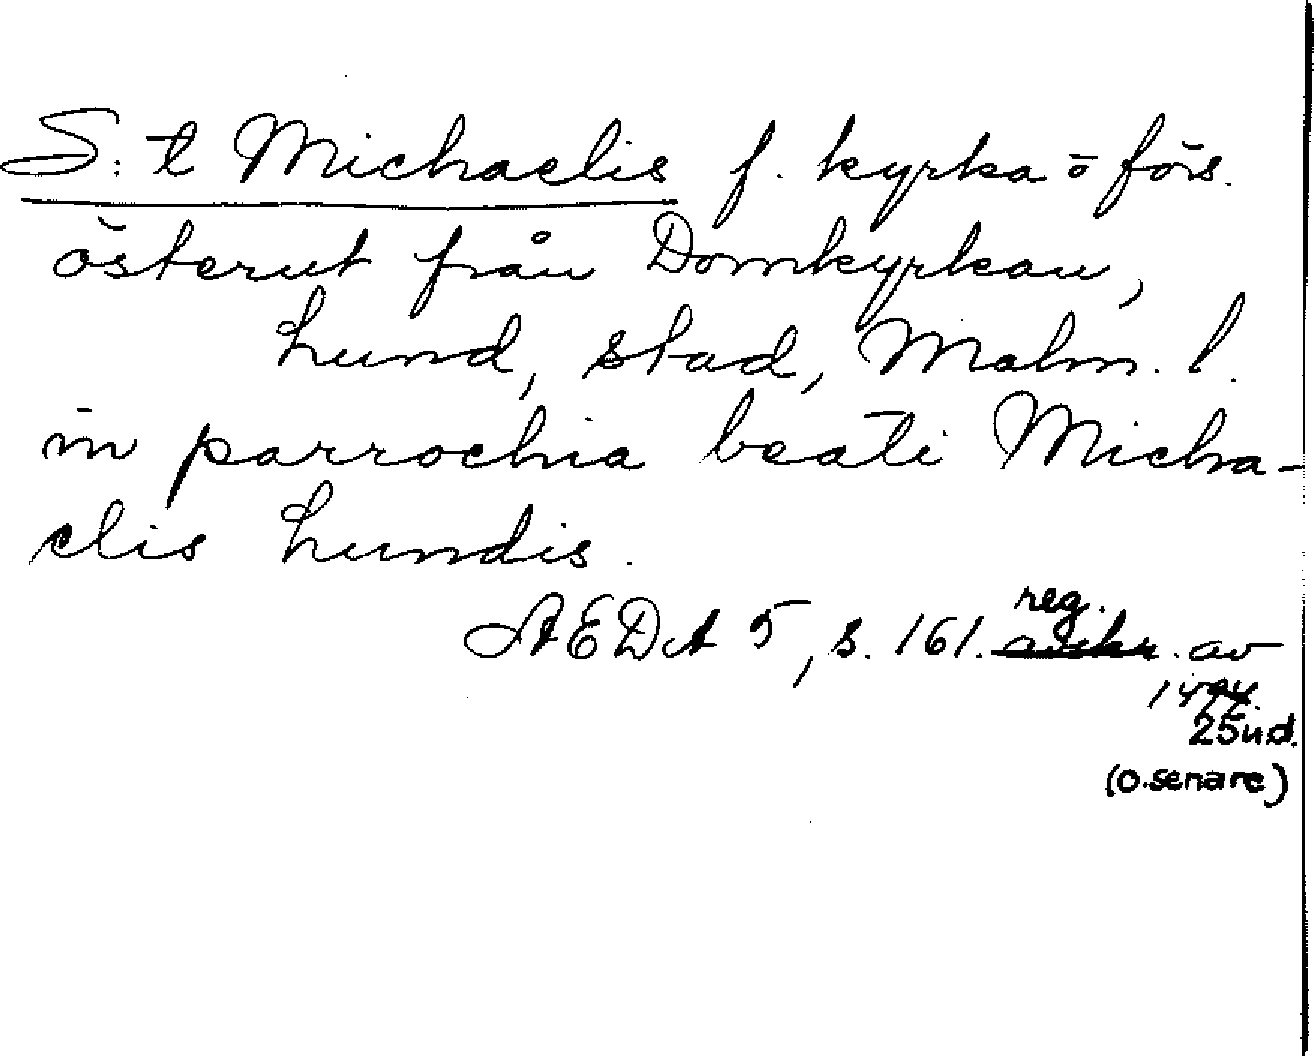 S:t Michaelis f. kyrka o förs.
österut från Domkyrkan,
Lund, stad, Malm. l.
in parrochia beati Micha-
elis Lundis.
AEDA 5, s. 161. reg. av
25 u.d.
(o. senare)